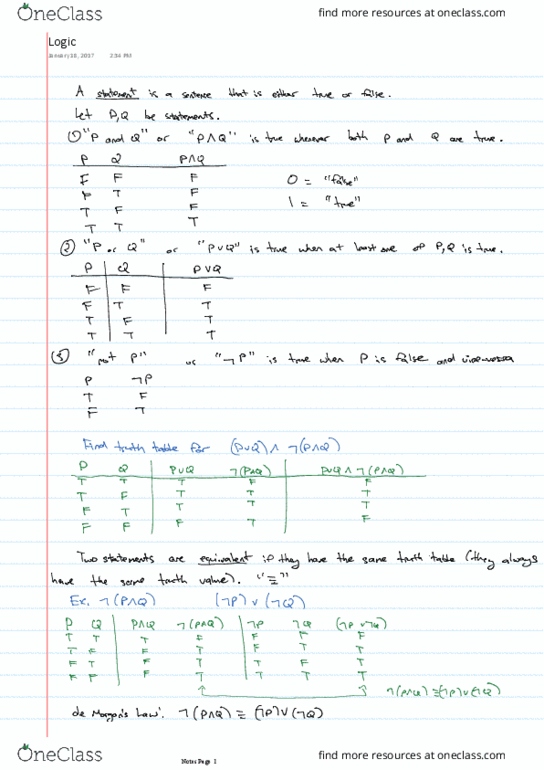 OneClass
find more resources at oneclass.com
Logic
January 18, 2017 2:34 PM
A statement is a sentence that is either true or false.
Let P,Q be statements.
① "P and Q" or "P∧Q" is true whenever both P and Q are true.
P Q P∧Q
F F F
F T F
T F F
T T T
0 = "false"
1 = "true"
② "P or Q" or "P∨Q" is true when at least one of P,Q is true.
P Q P∨Q
F F F
F T T
T F T
T T T
③ "not P" or "¬P" is true when P is false and vice-versa
P ¬P
T F
F T
Find truth table for (P∨Q)∧ ¬(P∧Q)
P Q P∨Q ¬(P∧Q) P∨Q ∧ ¬(P∧Q)
T T T F F
T F T T T
F T T T T
F F F T F
Two statements are equivalent if they have the same truth table (they always
have the same truth value). "≡"
Ex. ¬(P∧Q) (¬P)∨(¬Q)
P Q P∧Q ¬(P∧Q) ¬P ¬Q (¬P ∨ ¬Q)
T T T F F F F
T F F T F T T
F T F T T F T
F F F T T T T
¬(P∧Q) ≡ (¬P)∨(¬Q)
de Morgan's Law: ¬(P∧Q) ≡ (¬P)∨(¬Q)
Notes Page 1
OneClass
find more resources at oneclass.com